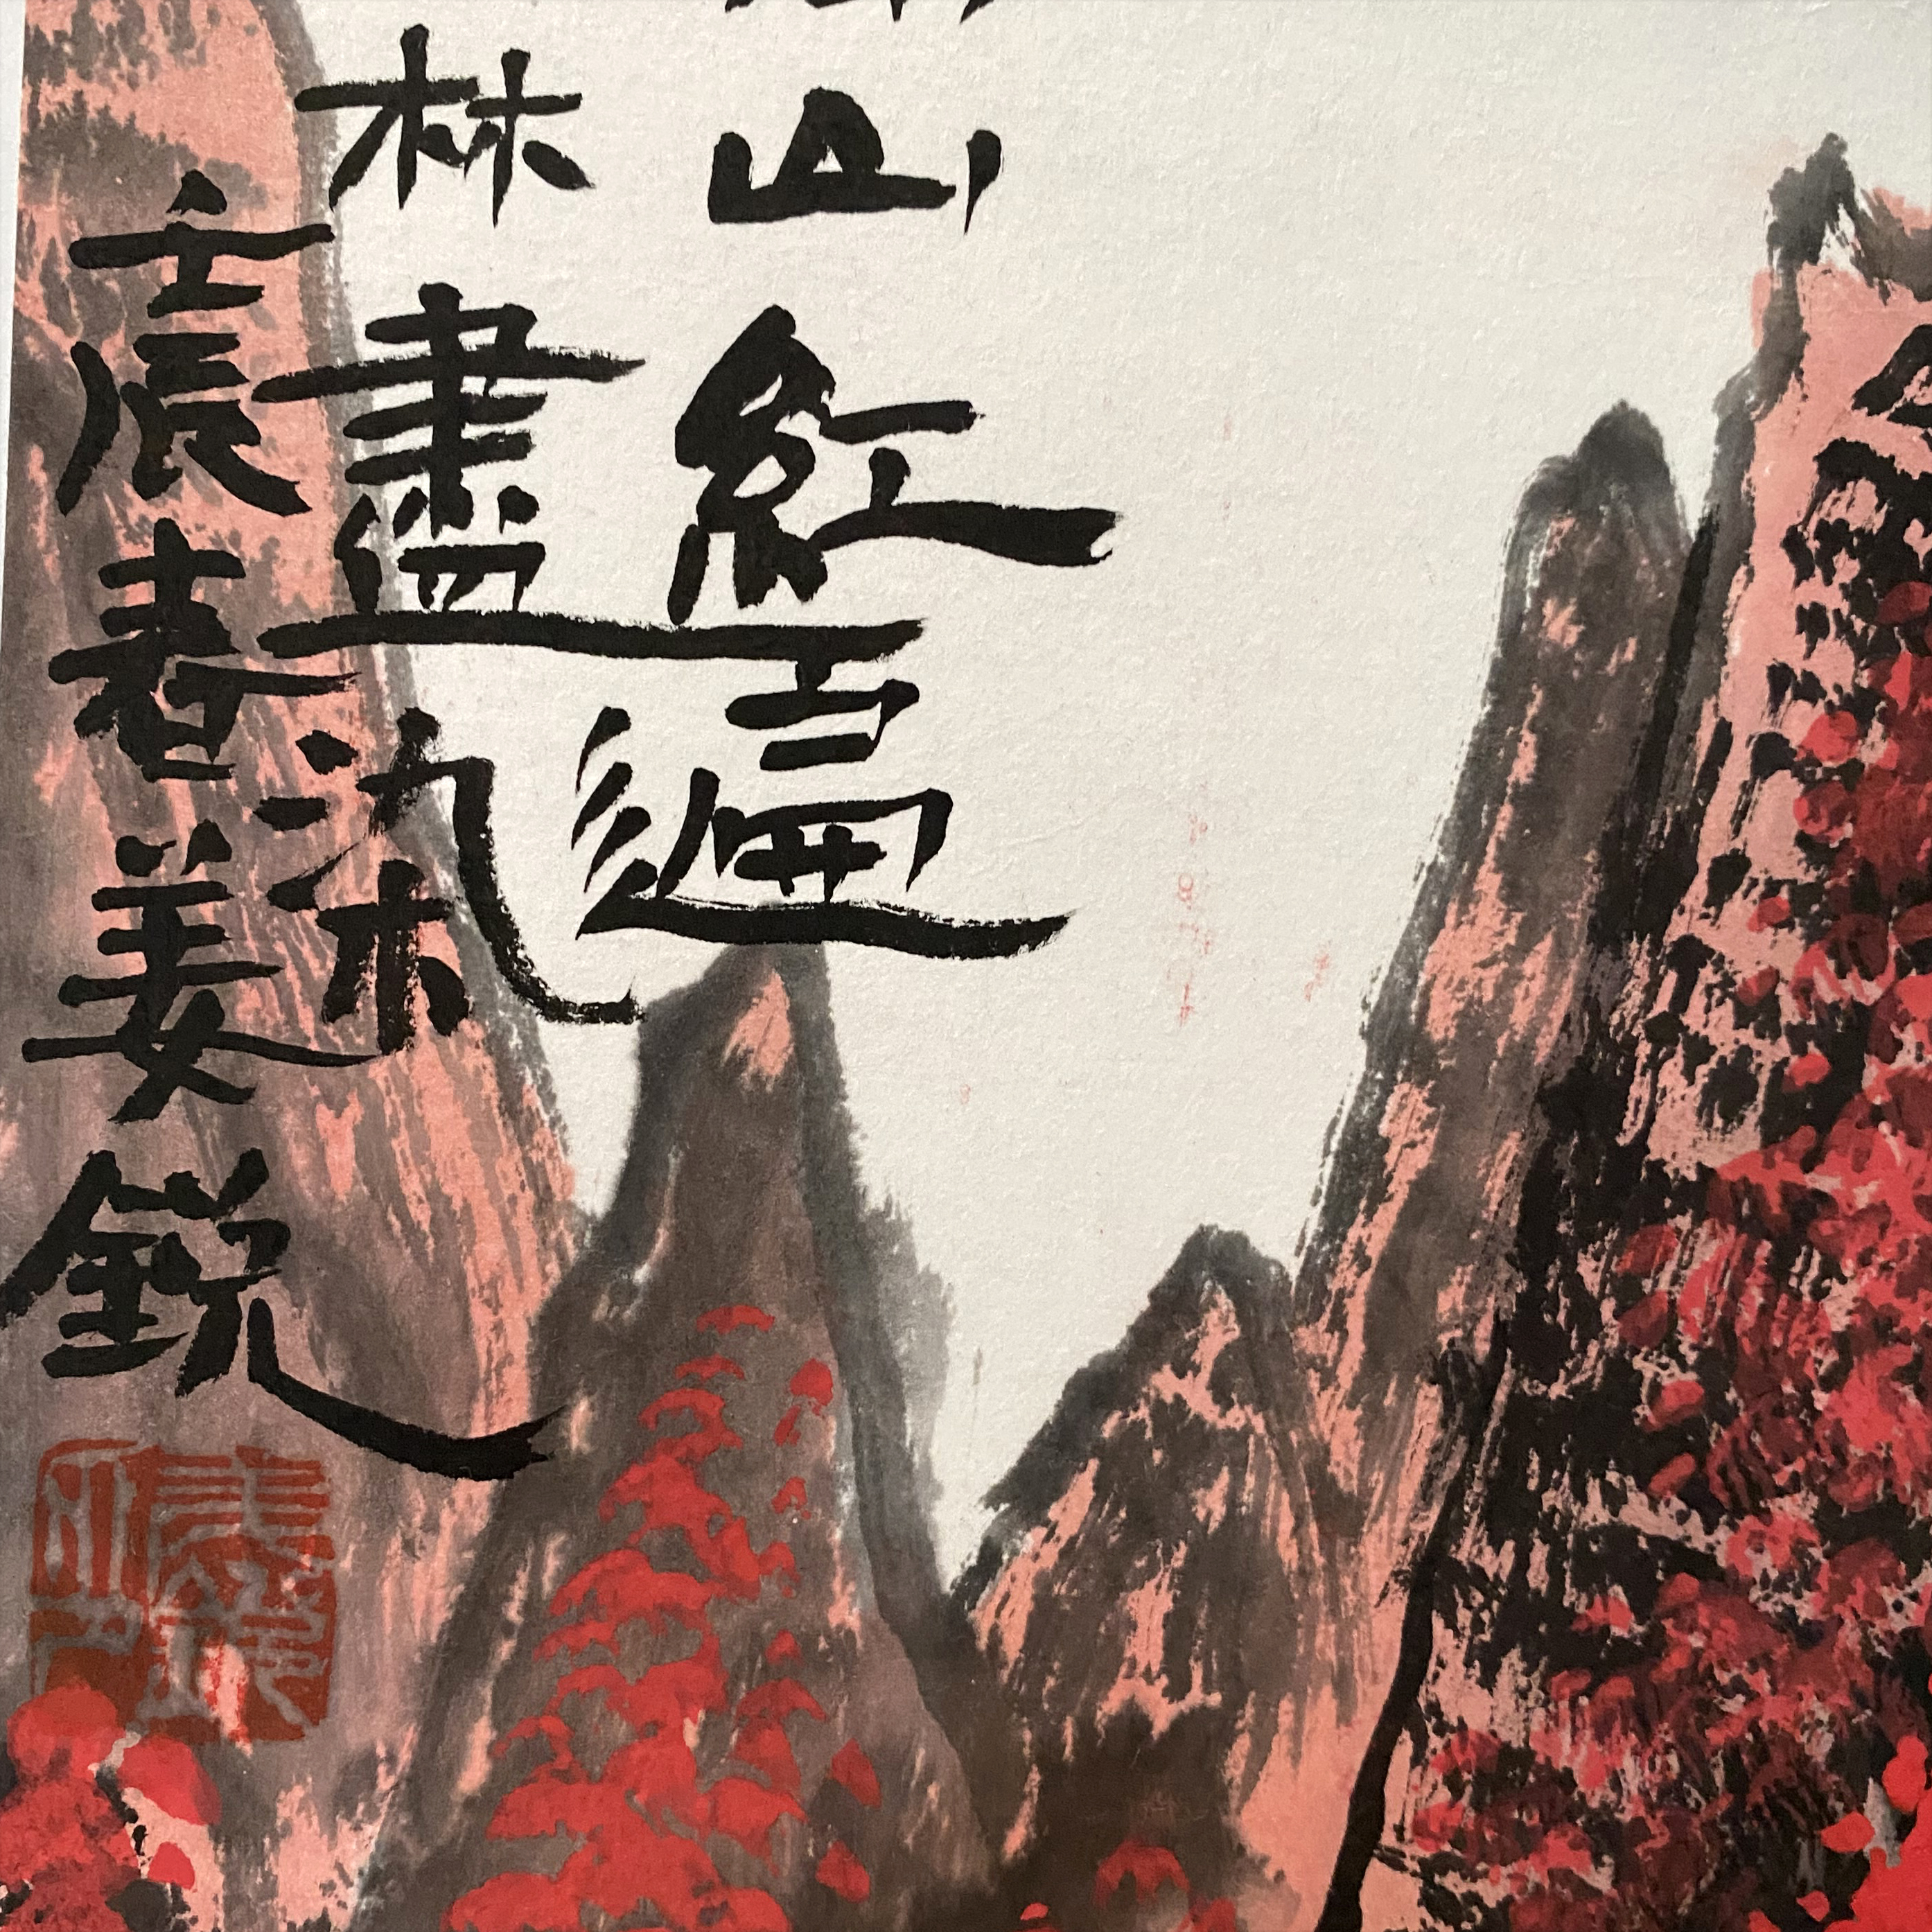 山紅遍
林盡染
壬辰春姜銳